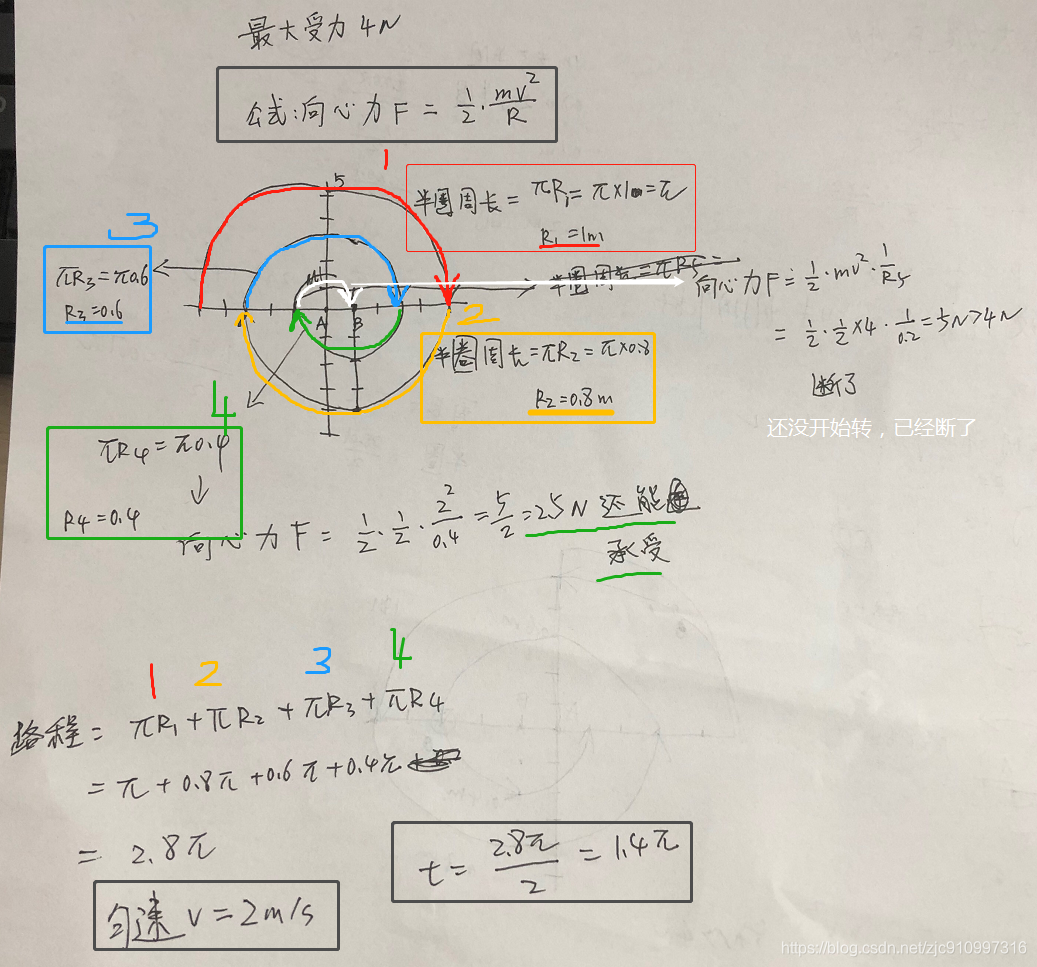 最大受力 4N
公式:向心力 F = 1/2 · mv²/R
1
5
半圈周长 = πR₁ = π×1m = π
R₁ = 1m
3
πR₃ = π0.6
R₃ = 0.6
半圈周长 = πR5 =
向心力 F = 1/2 · mv² · 1/R5
= 1/2 · 1/2 × 4 · 1/0.2 = 5N > 4N
断了
还没开始转，已经断了
A
B
2
半圈周长 = πR₂ = π×0.8
R₂ = 0.8m
4
πR4 = π0.4
↓
R4 = 0.4
向心力 F = 1/2 · 1/2 · 2²/0.4 = 5/2 = 2.5N 还能
承受
1 2 3 4
路程 = πR₁ + πR₂ + πR₃ + πR4
= π + 0.8π + 0.6π + 0.4π
= 2.8π
t = 2.8π/2 = 1.4π
匀速 v = 2m/s
https://blog.csdn.net/zjc910997316